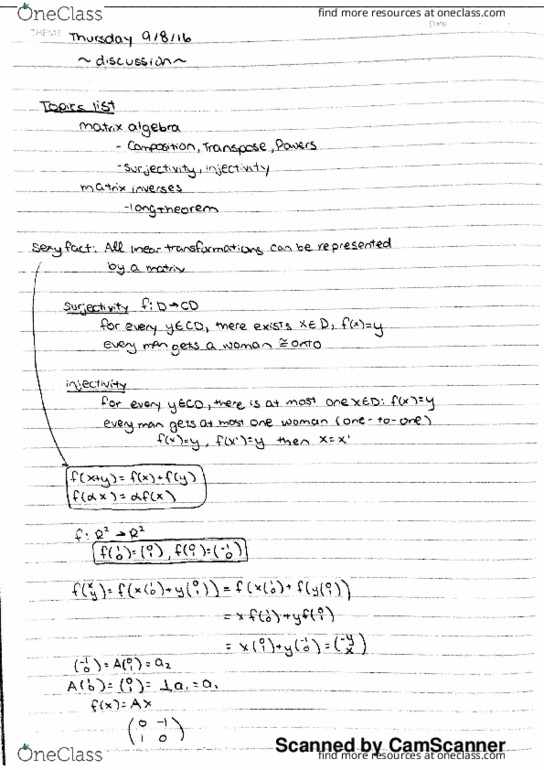 OneClass
find more resources at oneclass.com
Date
THEME Thursday 9/8/16
~discussion~
Topics list
matrix algebra
- Composition, Transpose, Powers
- Surjectivity, injectivity
matrix inverses
- long theorem
Sexy fact: All linear transformations can be represented
by a matrix
Surjectivity f: D→CD
for every y∈CD, there exists x∈D, f(x)=y
every man gets a woman ≅ onto
injectivity
for every y∈CD, there is at most one x∈D: f(x)=y
every man gets at most one woman (one-to-one)
f(x)=y, f(x')=y then x=x'
f(x+y)=f(x)+f(y)
f(αx)=αf(x)
f: R² → R²
f(1 0)=(0 1), f(0 1)=(-1 0)
f(x y)=f(x(1 0)+y(0 1))=f(x(1 0)+f(y(0 1))
= x f(1 0)+y f(0 1)
= x(0 1)+y(-1 0)=(-y x)
(-1 0)=A(0 1)=a₂
A(1 0)=(0 1)=1a₁=a₁
f(x)=Ax
(0 -1
1 0)
Scanned by CamScanner
OneClass
find more resources at oneclass.com